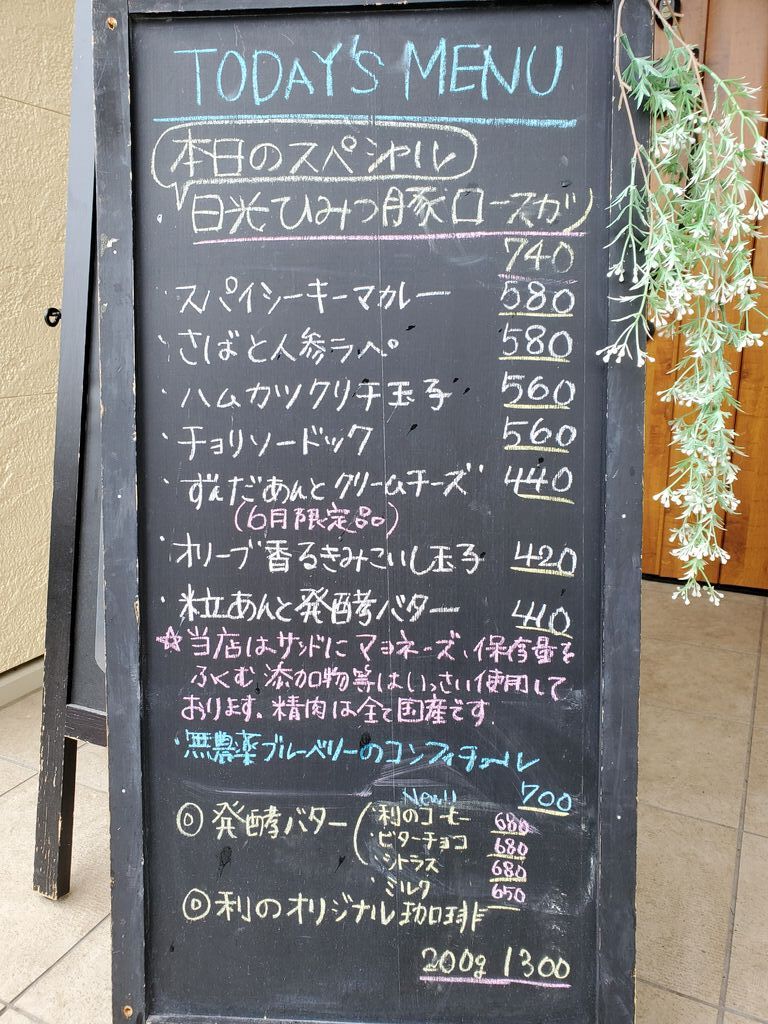 TODAY'S MENU
本日のスペシャル
日光ひみつ豚ロースカツ
740
・スパイシーキーマカレー 580
・さばと人参ラペ 580
・ハムカツクリチ玉子 560
・チョリソードック 560
・ずんだあんとクリームチーズ 440
(6月限定品)
・オリーブ香るきみこいし玉子 420
・粒あんと発酵バター 410
☆当店はサンドにマヨネーズ、保存量を
ふくむ添加物等はいっさい使用して
おります。精肉は全て国産です
・無農薬ブルーベリーのコンフィチュール
New!! 700
◎発酵バター ・利のコーヒー 680
・ビターチョコ 680
・シトラス 680
・ミルク 650
◎利のオリジナル珈琲
200g 1300